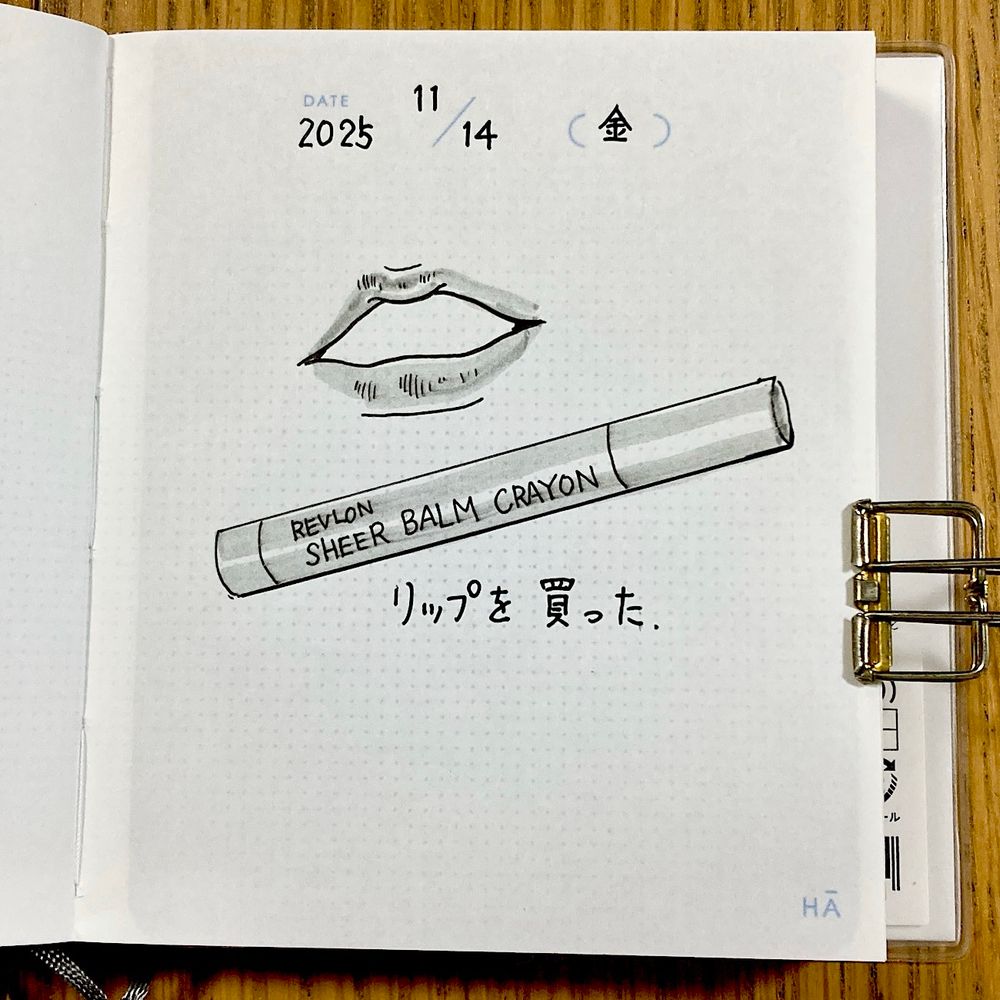 DATE
2025 11/14 (金)
REVLON
SHEER BALM CRAYON
リップを買った.
HĀ
ール